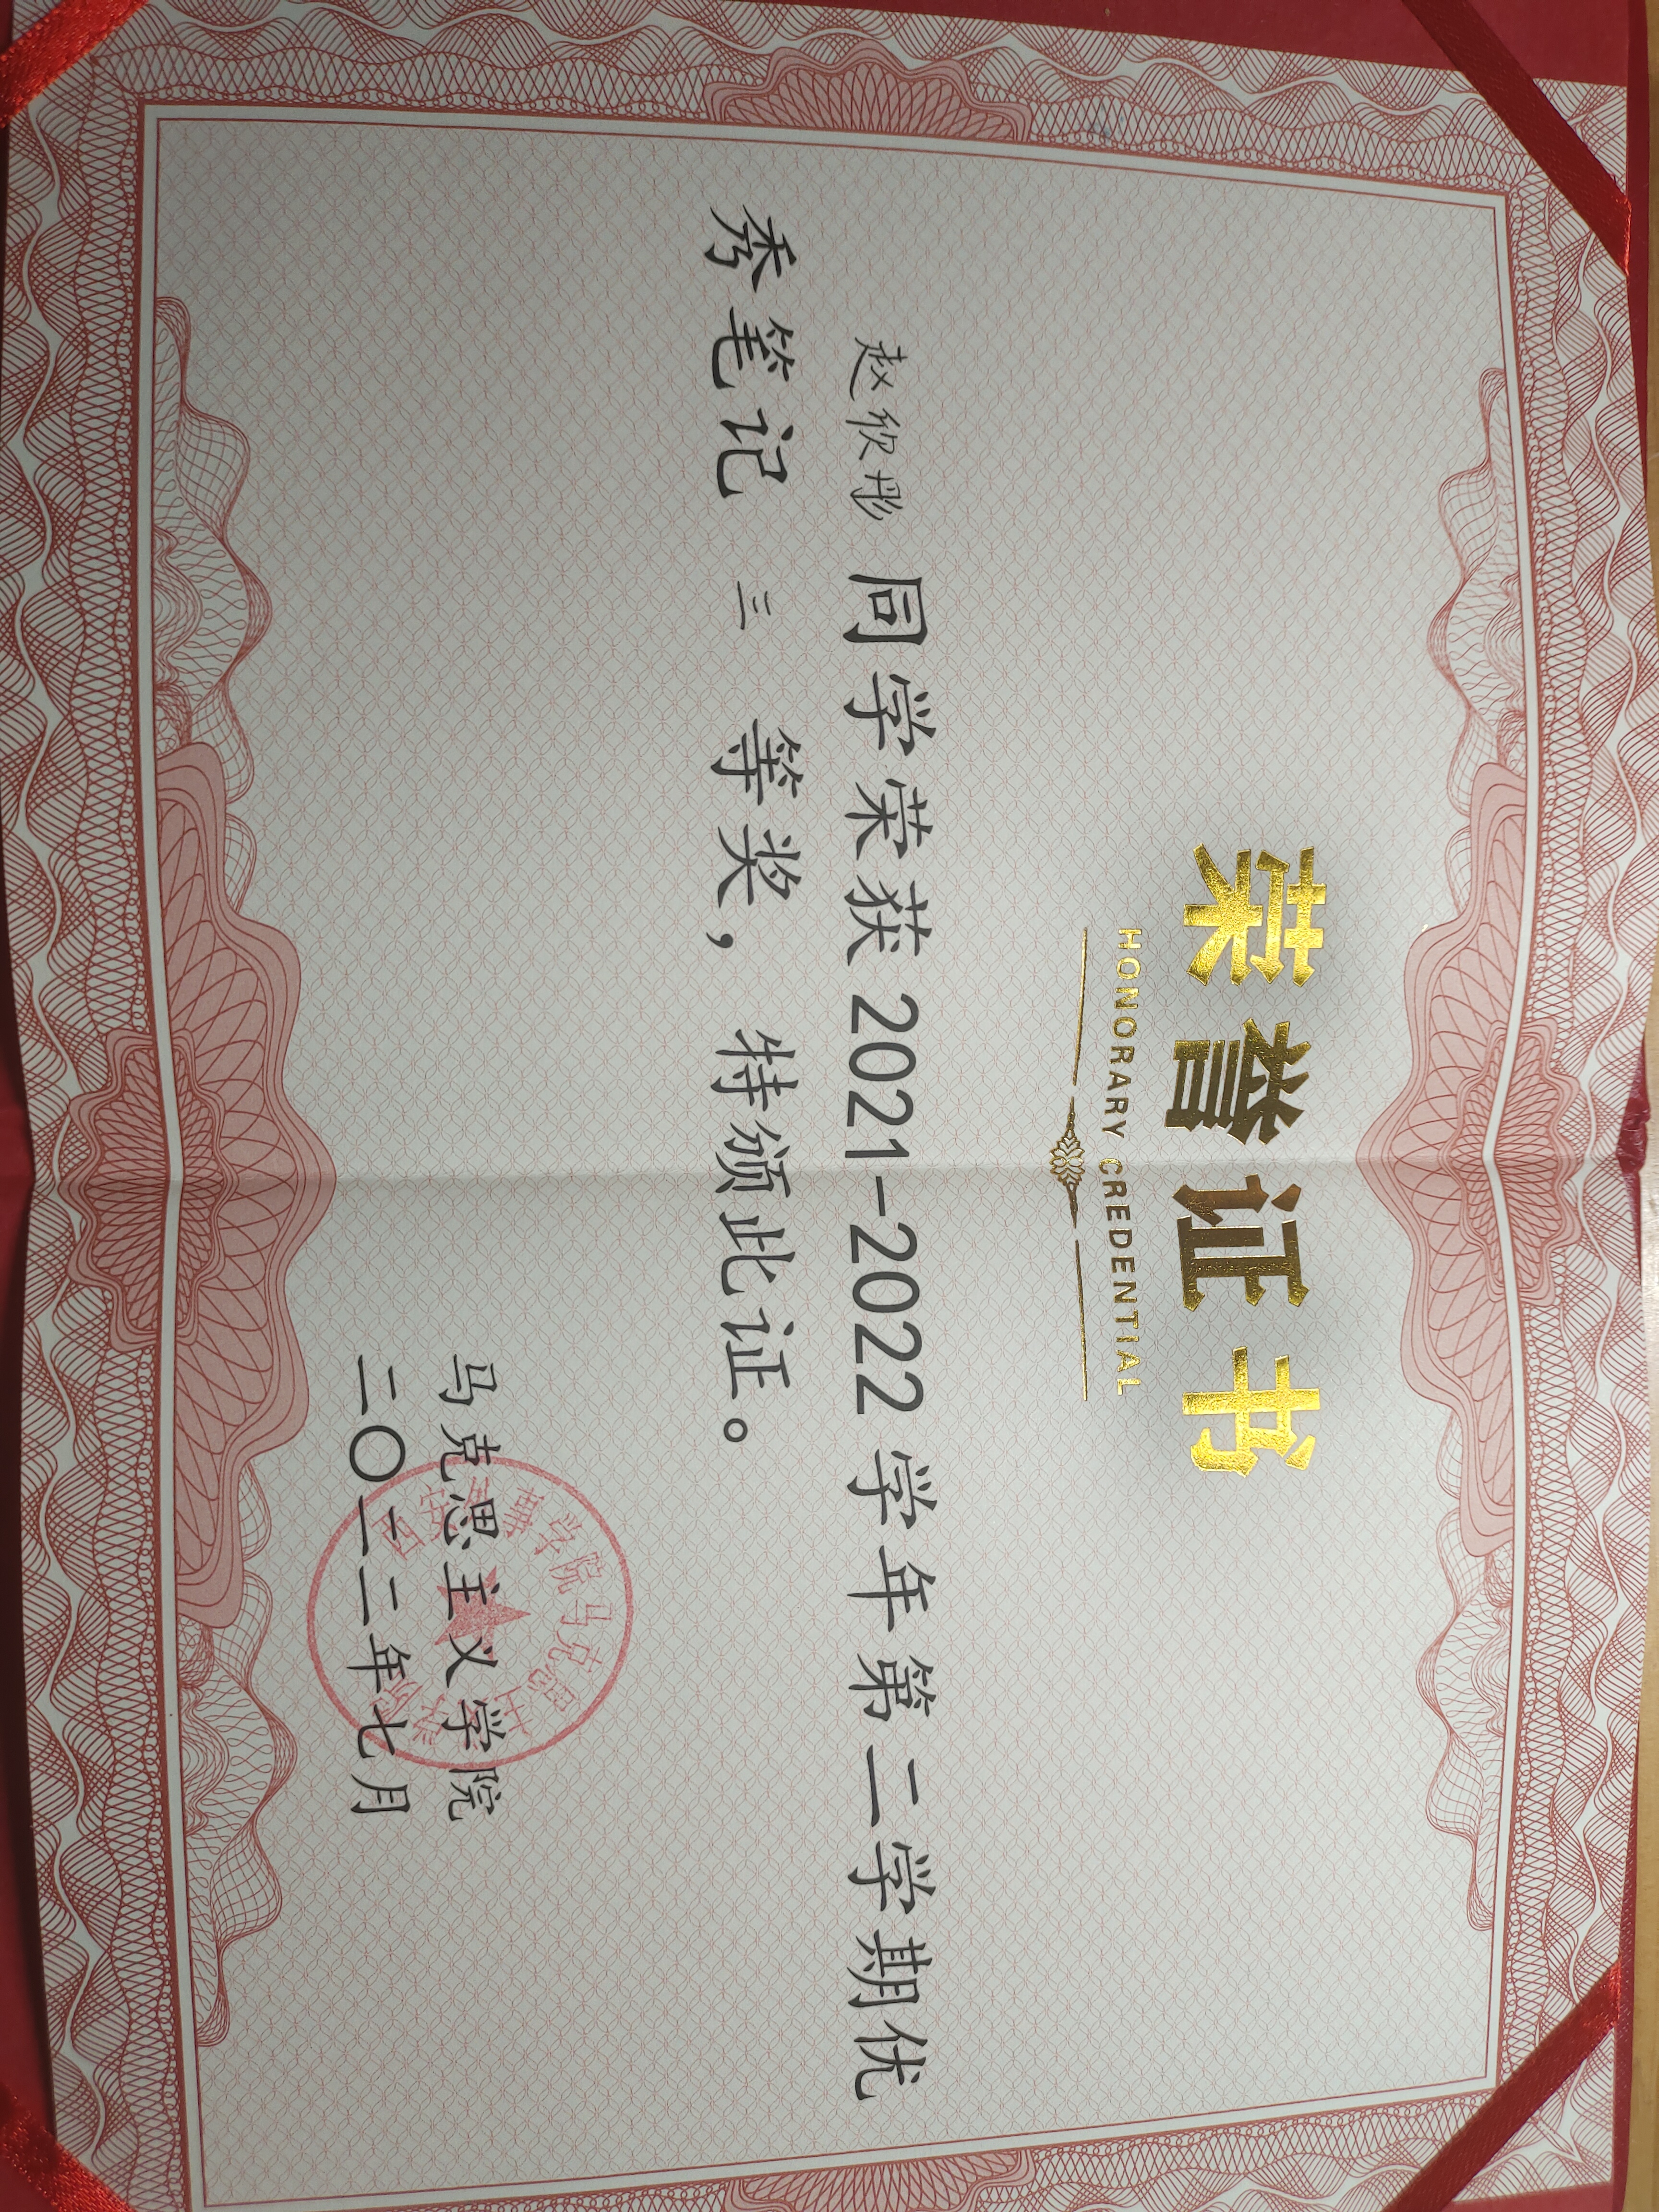 荣誉证书
HONORARY CREDENTIAL
赵欣彤 同学荣获 2021-2022 学年第二学期优
秀笔记 三 等奖，特颁此证。
马克思主义学院
二〇二二年七月